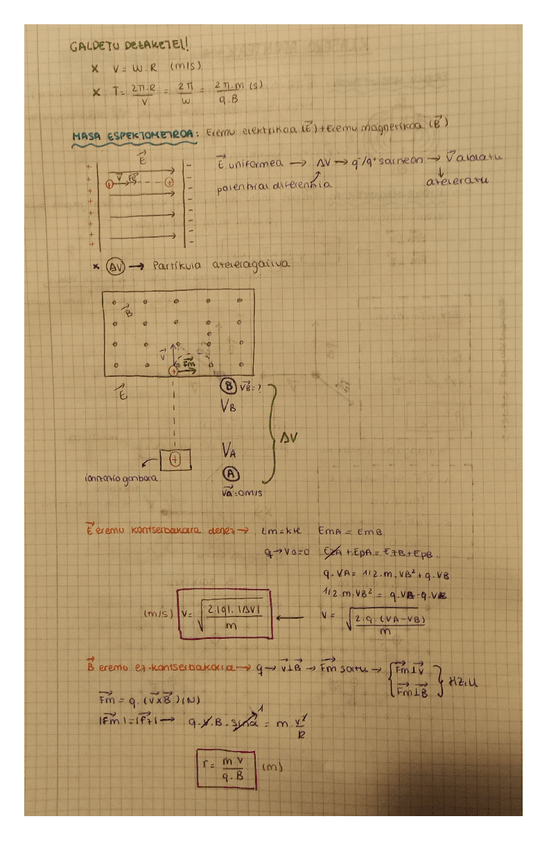 GALDETU DEZAKETE!!
× V = W.R (m/s)
× T = 2π.R/V = 2π/W = 2π.m/q.B (s)
MASA ESPEKTOMETROA: Eremu elektrikoa (E⃗) + Eremu magnetikoa (B⃗)
E⃗
E⃗ uniformea → ΔV → q⁻/q⁺ sartzean → V⃗ aldatu
potentzial diferentzia
azeleratu
× ΔV → Partikula azeleragailua
B⃗
V⃗
F⃗m
E⃗
B V⃗B = ?
VB
ΔV
VA
A
V⃗A = 0 m/s
ionizazio ganbara
E⃗ eremu kontserbakorra denez → Em = kte EmA = EmB
q → V0 = 0 EzA + EpA = EzB + EpB
q.VA = 1/2.m.VB² + q.VB
1/2.m.VB² = q.VA - q.VB
(m/s) V = √(2.|q|.|ΔV|/m) ← V = √(2.q.(VA-VB)/m)
B⃗ eremu ez-kontserbakorra → q → V⃗⊥B⃗ → F⃗m sortu → {F⃗m⊥V⃗ F⃗m⊥B⃗} HZ.U
F⃗m = q.(V⃗×B⃗) (N)
|F⃗m| = |F⃗z| → q.V.B.sinα 1 = m.V²/R
r = m V/q.B (m)